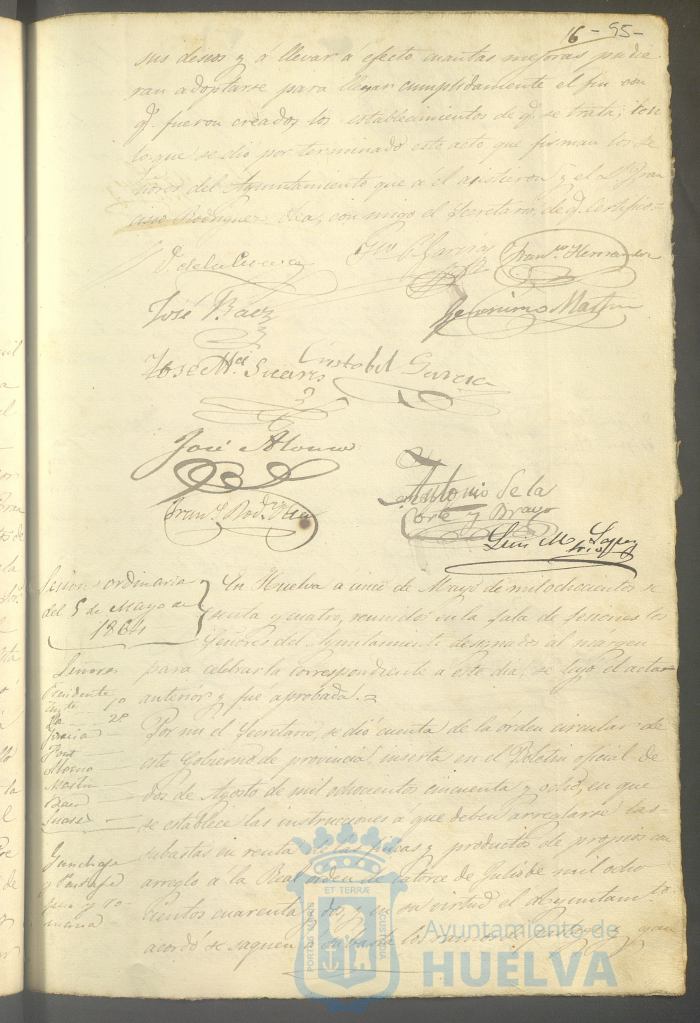 16 - 55 -
sus deseos y á llevar a efecto cuantas mejoras pudie
ran adoptarse para llenar cumplidamente el fin con
q.e fueron creados los establecimientos de q.e se trata; con
lo que se dió por terminado este acto que firman los Se
ñores del Ayuntamiento que a el asistieron y el Sr Fran
cisco Rodriguez conmigo el Secretario, de q.e Certifico =
V. de la Cueva
Fran.co Hernandez
José Baez
Geronimo Martin
José M.a Suares
Cristobal Garcia
José Alonso
Antonio de la
Corte y Bravo
Fran.o Rod.z
Luis M. Lopez
Srio
Sesion ordinaria
del 5 de Mayo de
1864
En Huelva a de Mayo de mil ochocientos se
senta y cuatro, reunidos en la sala de sesiones los
Señores del Ayuntamiento designados al margen
para celebrar la correspondiente a este dia, se leyó el acta
anterior y fue aprobada.
Señores
Presidente
1º
2º
Garcia
Moreno
Martin
Baez
Suares
Por mi el Secretario, se dió cuenta de la órden circular de
este Gobierno de provincia, inserta en el Boletin oficial de
dos de Agosto de mil ochocientos cincuenta y ocho, en que
se establece las instrucciones a que deben arreglarse las
subastas en renta de las fincas y productos de propios con
arreglo a la Real orden de catorce de Julio de mil ocho
cientos cuarenta y dos, y en su virtud el Ayuntam.to
acordó se saquen a subasta los
PORTUS MARIS
ET TERRÆ
CUSTODIA
Ayuntamiento de
HUELVA